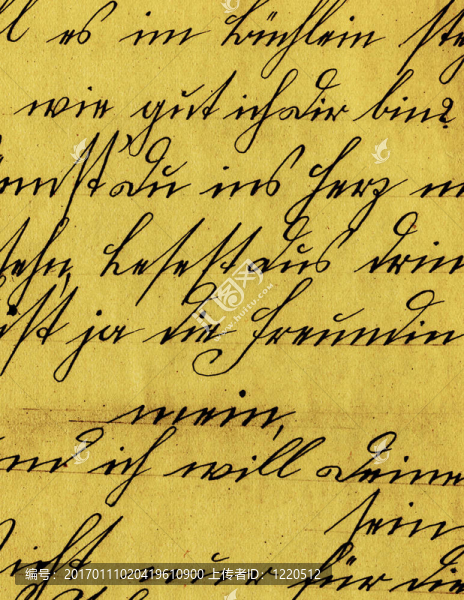 es im Büchlein
wie gut ich dir bin?
du ins Herz
sehn, lesest aus drin
ist ja die Freundin
mein,
und ich will deine
sein
nicht nur für die
编号: 20170111020419610900 上传者ID: 1220512